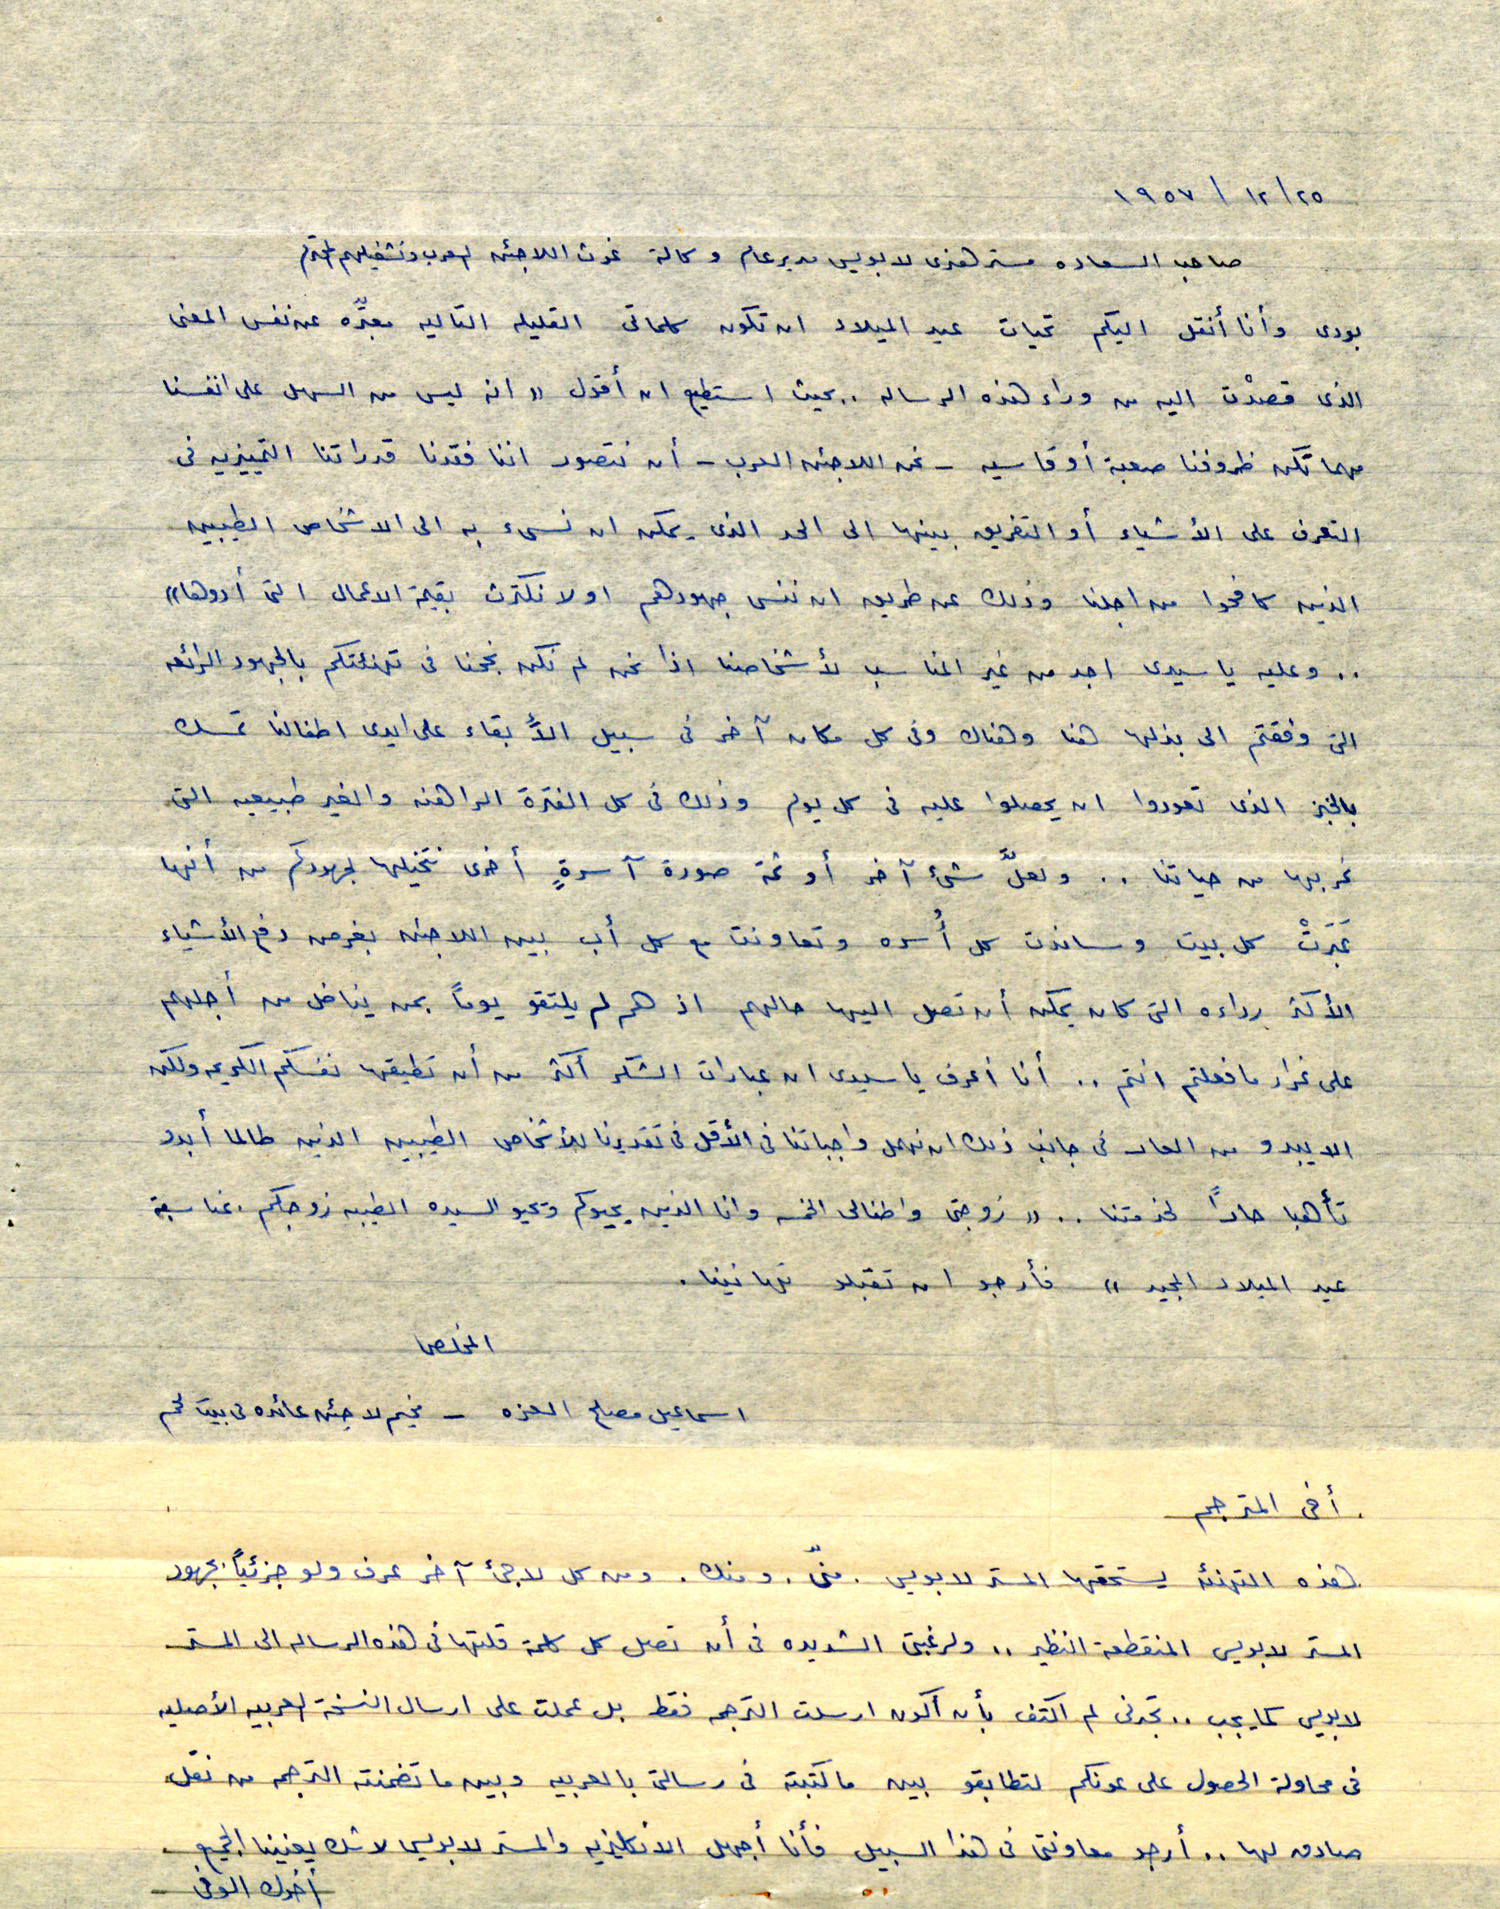 ٢٥/ ١٢/ ١٩٥٧
صاحب السعاده مستر هنرى لابويس مدير عام وكالة غوث اللاجئين العرب وتشغيلهم المحترم
بودى وأنا أنقل اليكم تحيات عيد الميلاد ان تكون كلماتى القليله التاليه معبّره عن نفس المعنى
الذى قصدْت اليه من وراء هذه الرساله .. بحيث استطيع ان أقول « انه ليس من السهل على انفسنا
مهما تكن ظروفنا صعبة أو قاسيه - نحن اللاجئين العرب - أن نتصور اننا فقدنا قدراتنا التمييزيه فى
التعرف على الأشياء أو التفريق بينها الى الحد الذى يمكن ان نسىء به الى الاشخاص الطيبين
الذين كافحوا من اجلنا وذلك عن طريق ان ننسى جهودهم او لا نكترث بقيمة الاعمال التى أدوها»
.. وعليه يا سيدى اجد من غير المناسب لأشخاصنا اذا نحن لم نكن نجحنا فى تهنئتكم بالجهود الرائعه
التى وفقتم الى بذلها هنا وهناك وفى كل مكان آخر فى سبيل الأبقاء على ايدى اطفالنا تمسك
بالخبز الذى تعودوا ان يحصلوا عليه فى كل يوم وذلك فى كل الفترة الراهنه والغير طبيعيه التى
نمر بها من حياتنا .. ولعلّ شئ آخر أو ثمة صورة آسرةٍ أخرى نتخيلها لجهودكم من أنها
عَبَرَتْ كل بيت وساندت كل أُسره وتعاونت مع كل أب بين اللاجئين بغرض دفع الأشياء
الأكثر رداءه التى كان يمكن أن تصل اليها حالهم اذ هم لم يلتقو يوماً بمن يناضل من أجلهم
على غرار ما فعلتم انتم .. أنا أعرف يا سيدى ان عبارات الشكر أكثر من أن تطيقها نفسكم الكريمه ولكن
الا يبدو من العار فى جانب ذلك ان نهمل واجباتنا فى الأقل فى تقديرنا للأشخاص الطيبين الذين طالما أبدو
تأهبا حاداً لخدمتنا .. « زوجتى واطفالى الخمسه وانا الذين يحيوكم ويحيو السيده الطيبه زوجكم بمناسبة
عيد الميلاد المجيد » فأرجو ان تقبلو تهانينا .
المخلص
اسماعيل مصلح العزه - مخيم لاجئين عائده فى بيت لحم
أخى المترجم
هذه التهنئه يستحقها المستر لابويس . منّى . ومنك . ومن كل لاجئ آخر عرف ولو جزئياً بجهود
المستر لابويس المنقطعة النظير .. ولرغبتى الشديده فى أن تصل كل كلمة قلتها فى هذه الرساله الى المستر
لابويس كما يجب .. تجدنى لم اكتف بأن أكون ارسلت الترجمه فقط بل عملت على ارسال النسخة العربيه الأصليه
فى محاولة الحصول على عونكم لتطابقو بين ما كتبته فى رسالتى بالعربيه وبين ما تضمنته الترجمه من نقل
صادق لها .. أرجو معاونتى فى هذا السبيل فأنا أجهل الانكليزيه والمستر لابويس لا شك يعنينا الجميع
أخوك الوفى